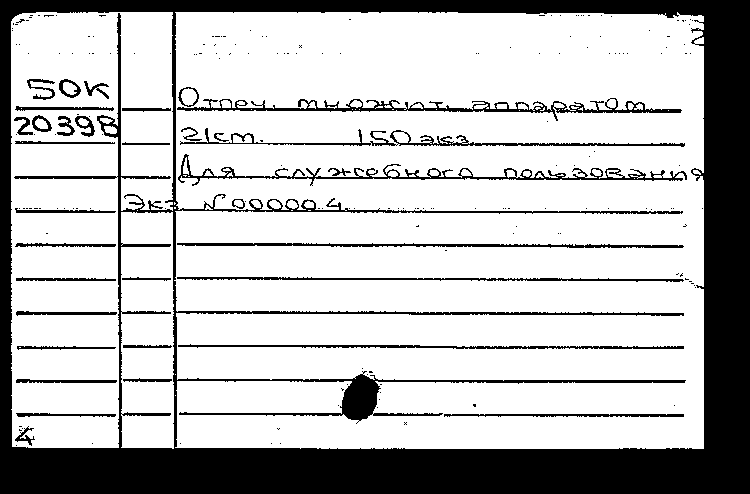 2
50К
Отпеч. множит. аппаратом
2039В
21см. 150 экз.
Для служебного пользования
Экз №000004
4